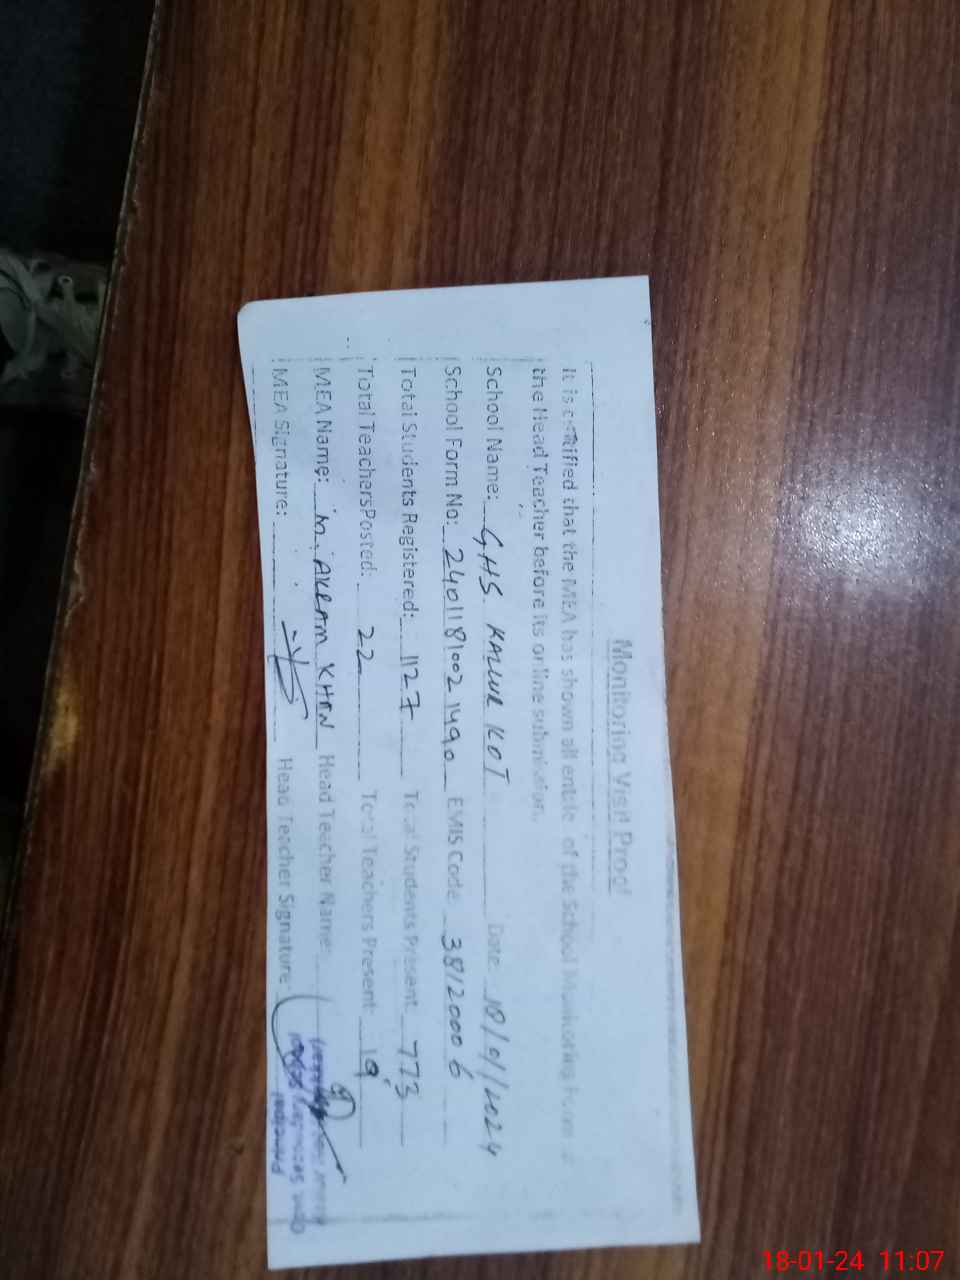 Monitoring Visit Proof
It is certified that the MEA has shown all entile of the School Monitoring Form
the Head Teacher before its online submission.
School Name: GHS KALLUR KOT Date: 18/01/2024
School Form No: 2401181002 1490 EMIS Code 38120006
Total Students Registered: 1127 Total Students Present: 773
Total Teachers Posted: 22 Total Teachers Present: 19
MEA Name: M. AKRAM KHAN Head Teacher Name:
MEA Signature: Head Teacher Signature:
Principal
18-01-24 11:07